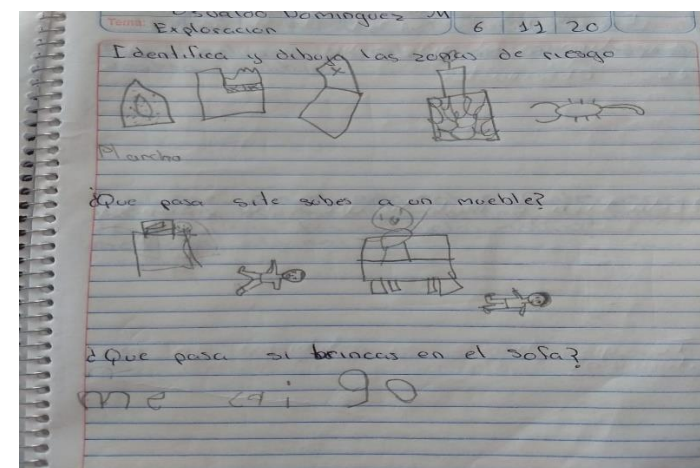 Osvaldo Dominguez M
Tema: Exploracion 6 11 20
Identifica y dibuja las zonas de riesgo
Mancho
¿Que pasa si te subes a un mueble?
¿Que pasa si brincas en el sofa?
me cai go